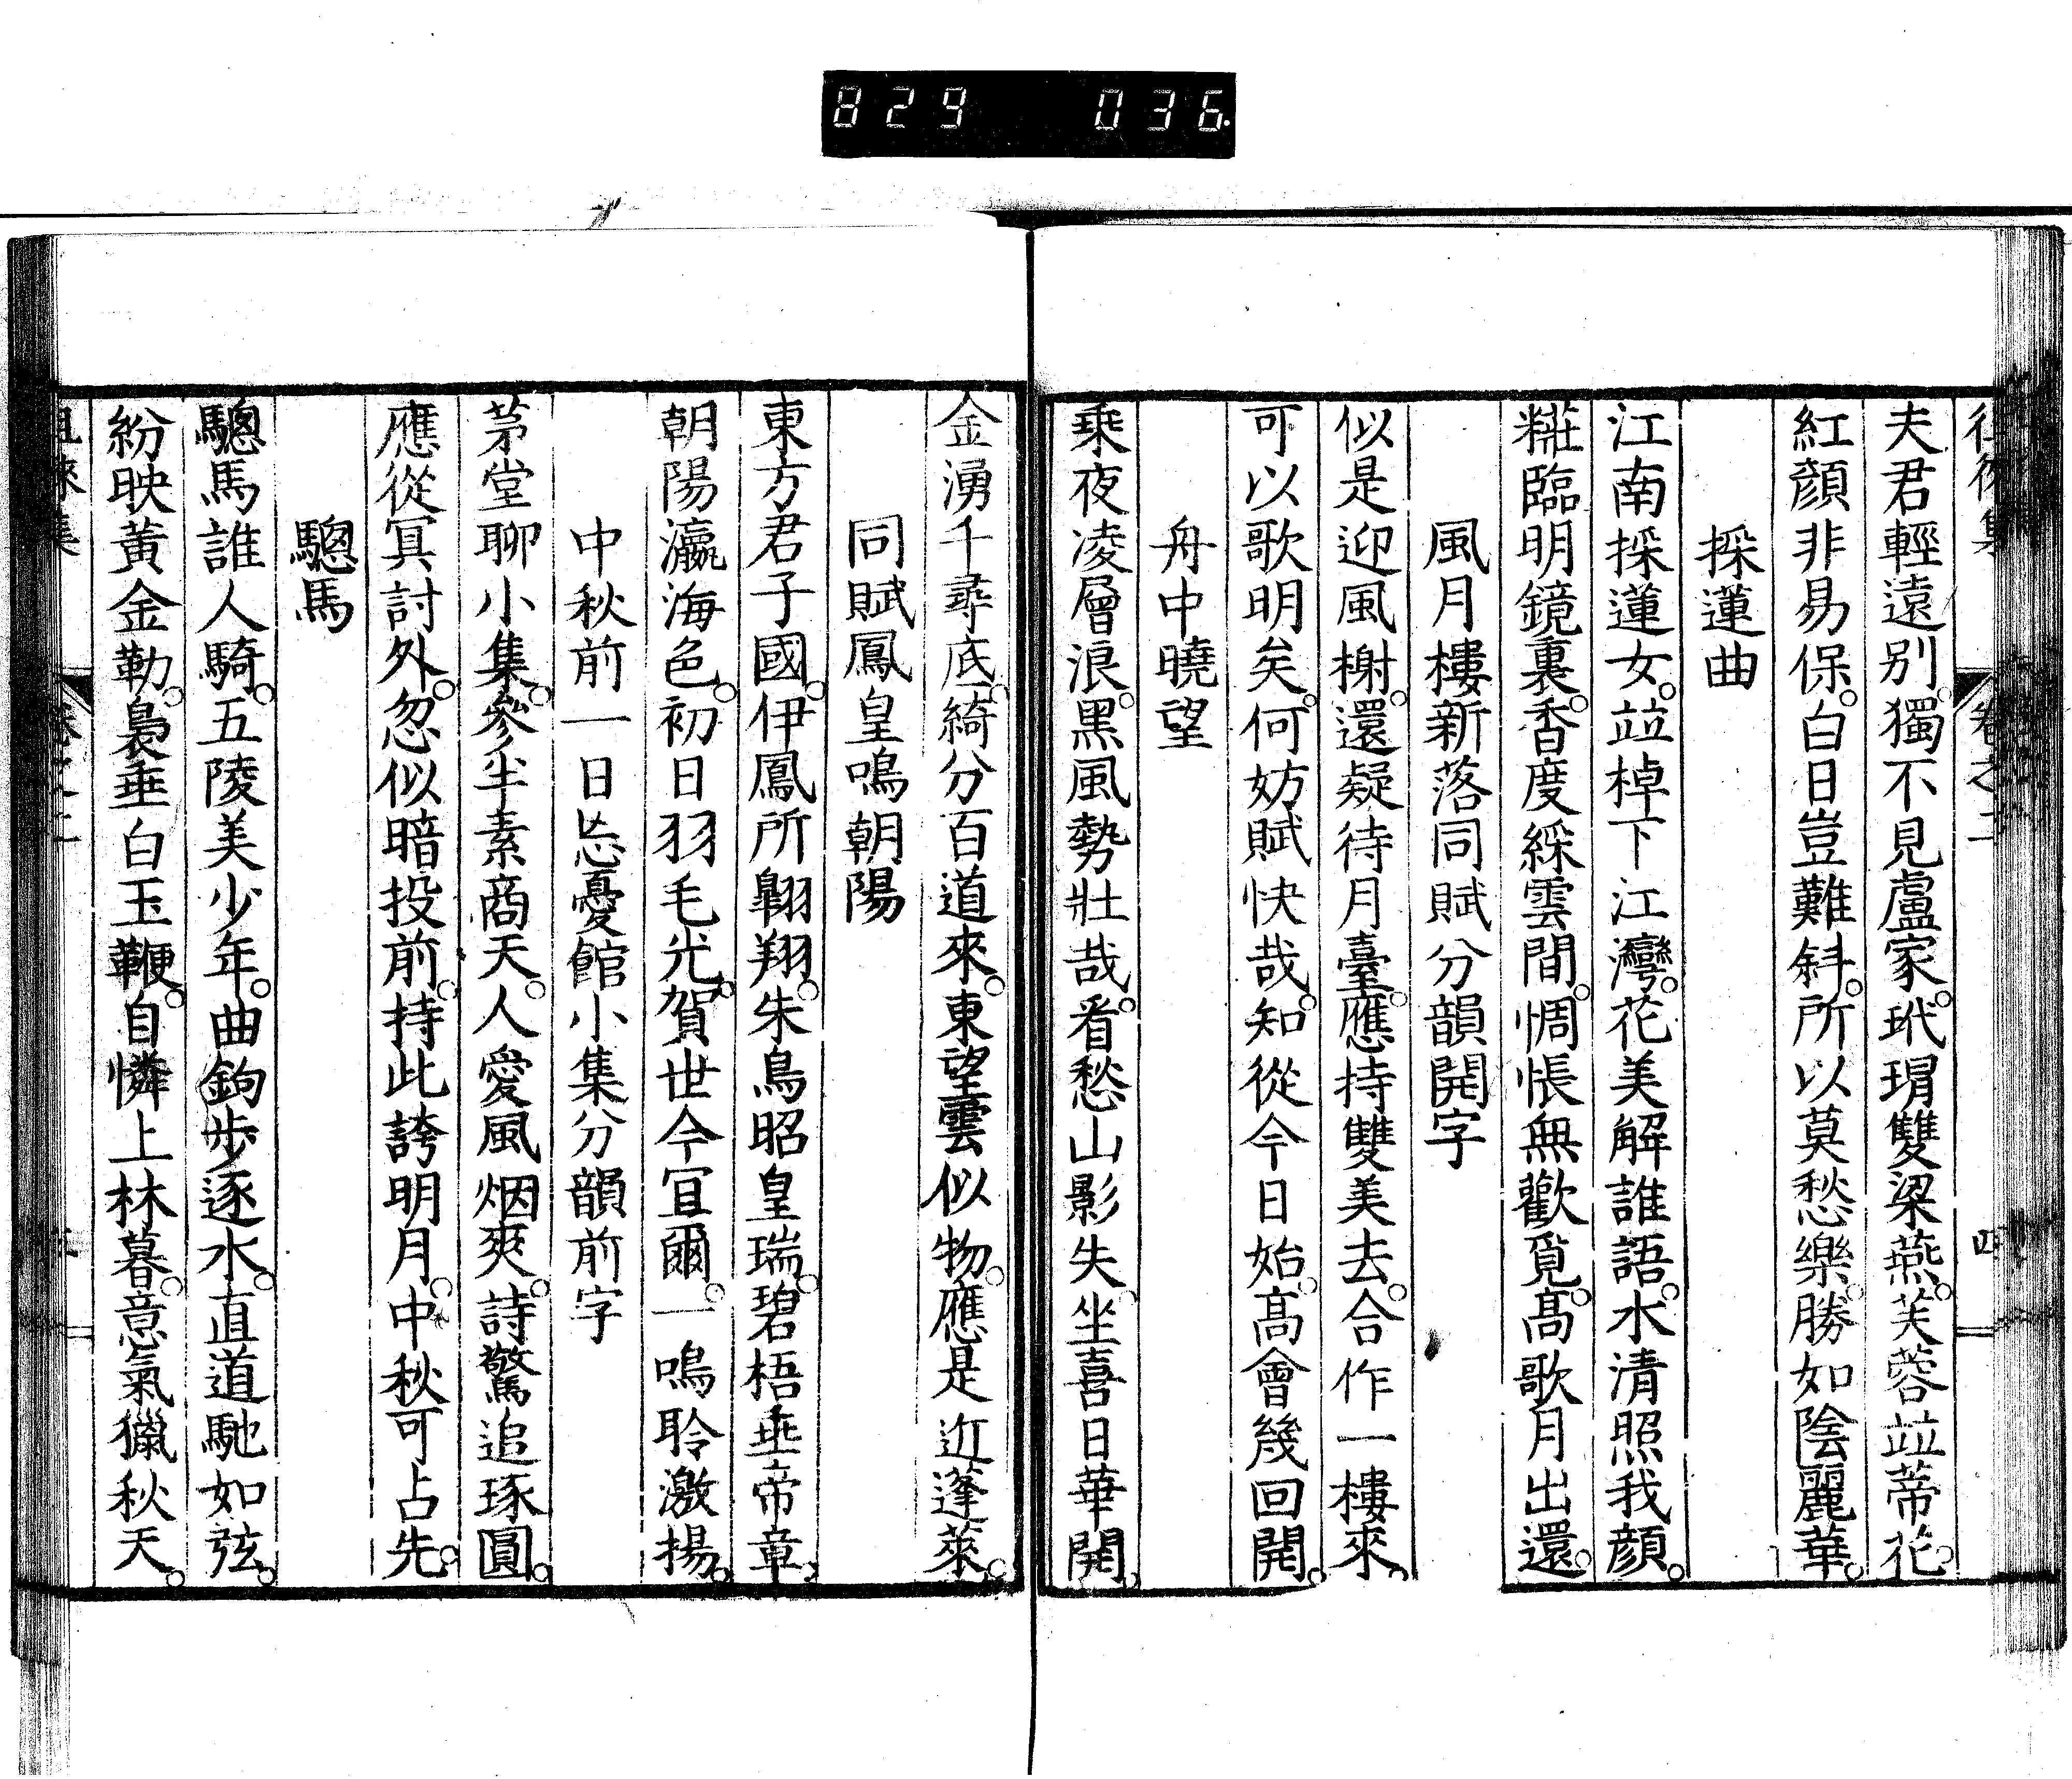 829 036
夫君輕遠別。獨不見盧家。玳瑁雙梁燕。芙蓉竝蒂花。
紅顏非易保。白日豈難斜。所以莫愁樂。勝如陰麗華。
採蓮曲
江南採蓮女。竝棹下江灣。花美解誰語。水清照我顏。
糚臨明鏡裏。香度綵雲間。惆悵無歡覓。高歌月出還。
風月樓新落同賦分韻開字
似是迎風榭。還疑待月臺。應持雙美去。合作一樓來。
可以歌明矣。何妨賦快哉。知從今日始。高會幾回開。
舟中曉望
乗夜凌層浪。黑風勢壯哉。看愁山影失。坐喜日華開。
金湧千尋底。綺分百道來。東望雲似物。應是近蓬萊。
同賦鳳皇鳴朝陽
東方君子國。伊鳳所翺翔。朱鳥昭皇瑞。碧梧垂帝章。
朝陽瀛海色。初日羽毛光。賀世今宜爾。一鳴聆激揚。
中秋前一日忘憂館小集分韻前字
茅堂聊小集。參半素商天。人愛風烟爽。詩驚追琢圓。
應從冥討外。忽似暗投前。持此誇明月。中秋可占先。
驄馬
驄馬誰人騎。五陵美少年。曲鉤步逐水。直道馳如弦。
紛映黃金勒。裊垂白玉鞭。自憐上林暮。意氣獵秋天。